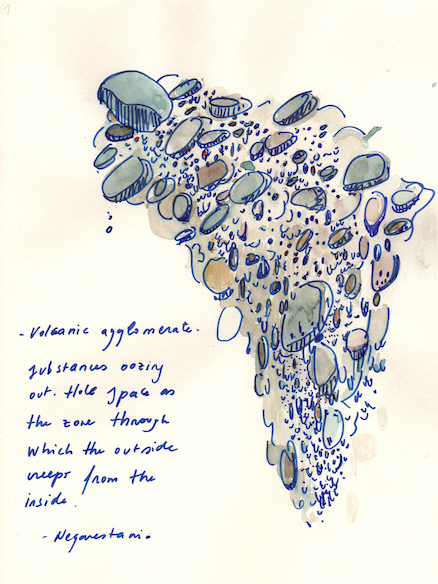 - Volcanic agglomerate.
substances oozing
out. Hole space as
the zone through
which the outside
creeps from the
inside.
- Negarestani.